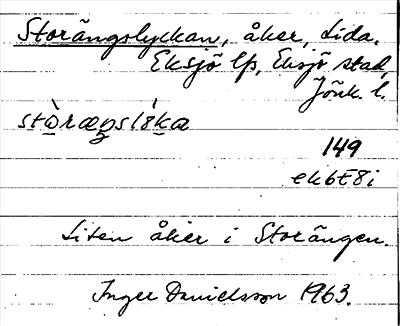 Storängslyckan, åker, Lida.
Eksjö lfs, Eksjö stad,
Jönk. l.
149
ek6t8i
Liten åker i Storängen.
Inger Danielsson 1963.